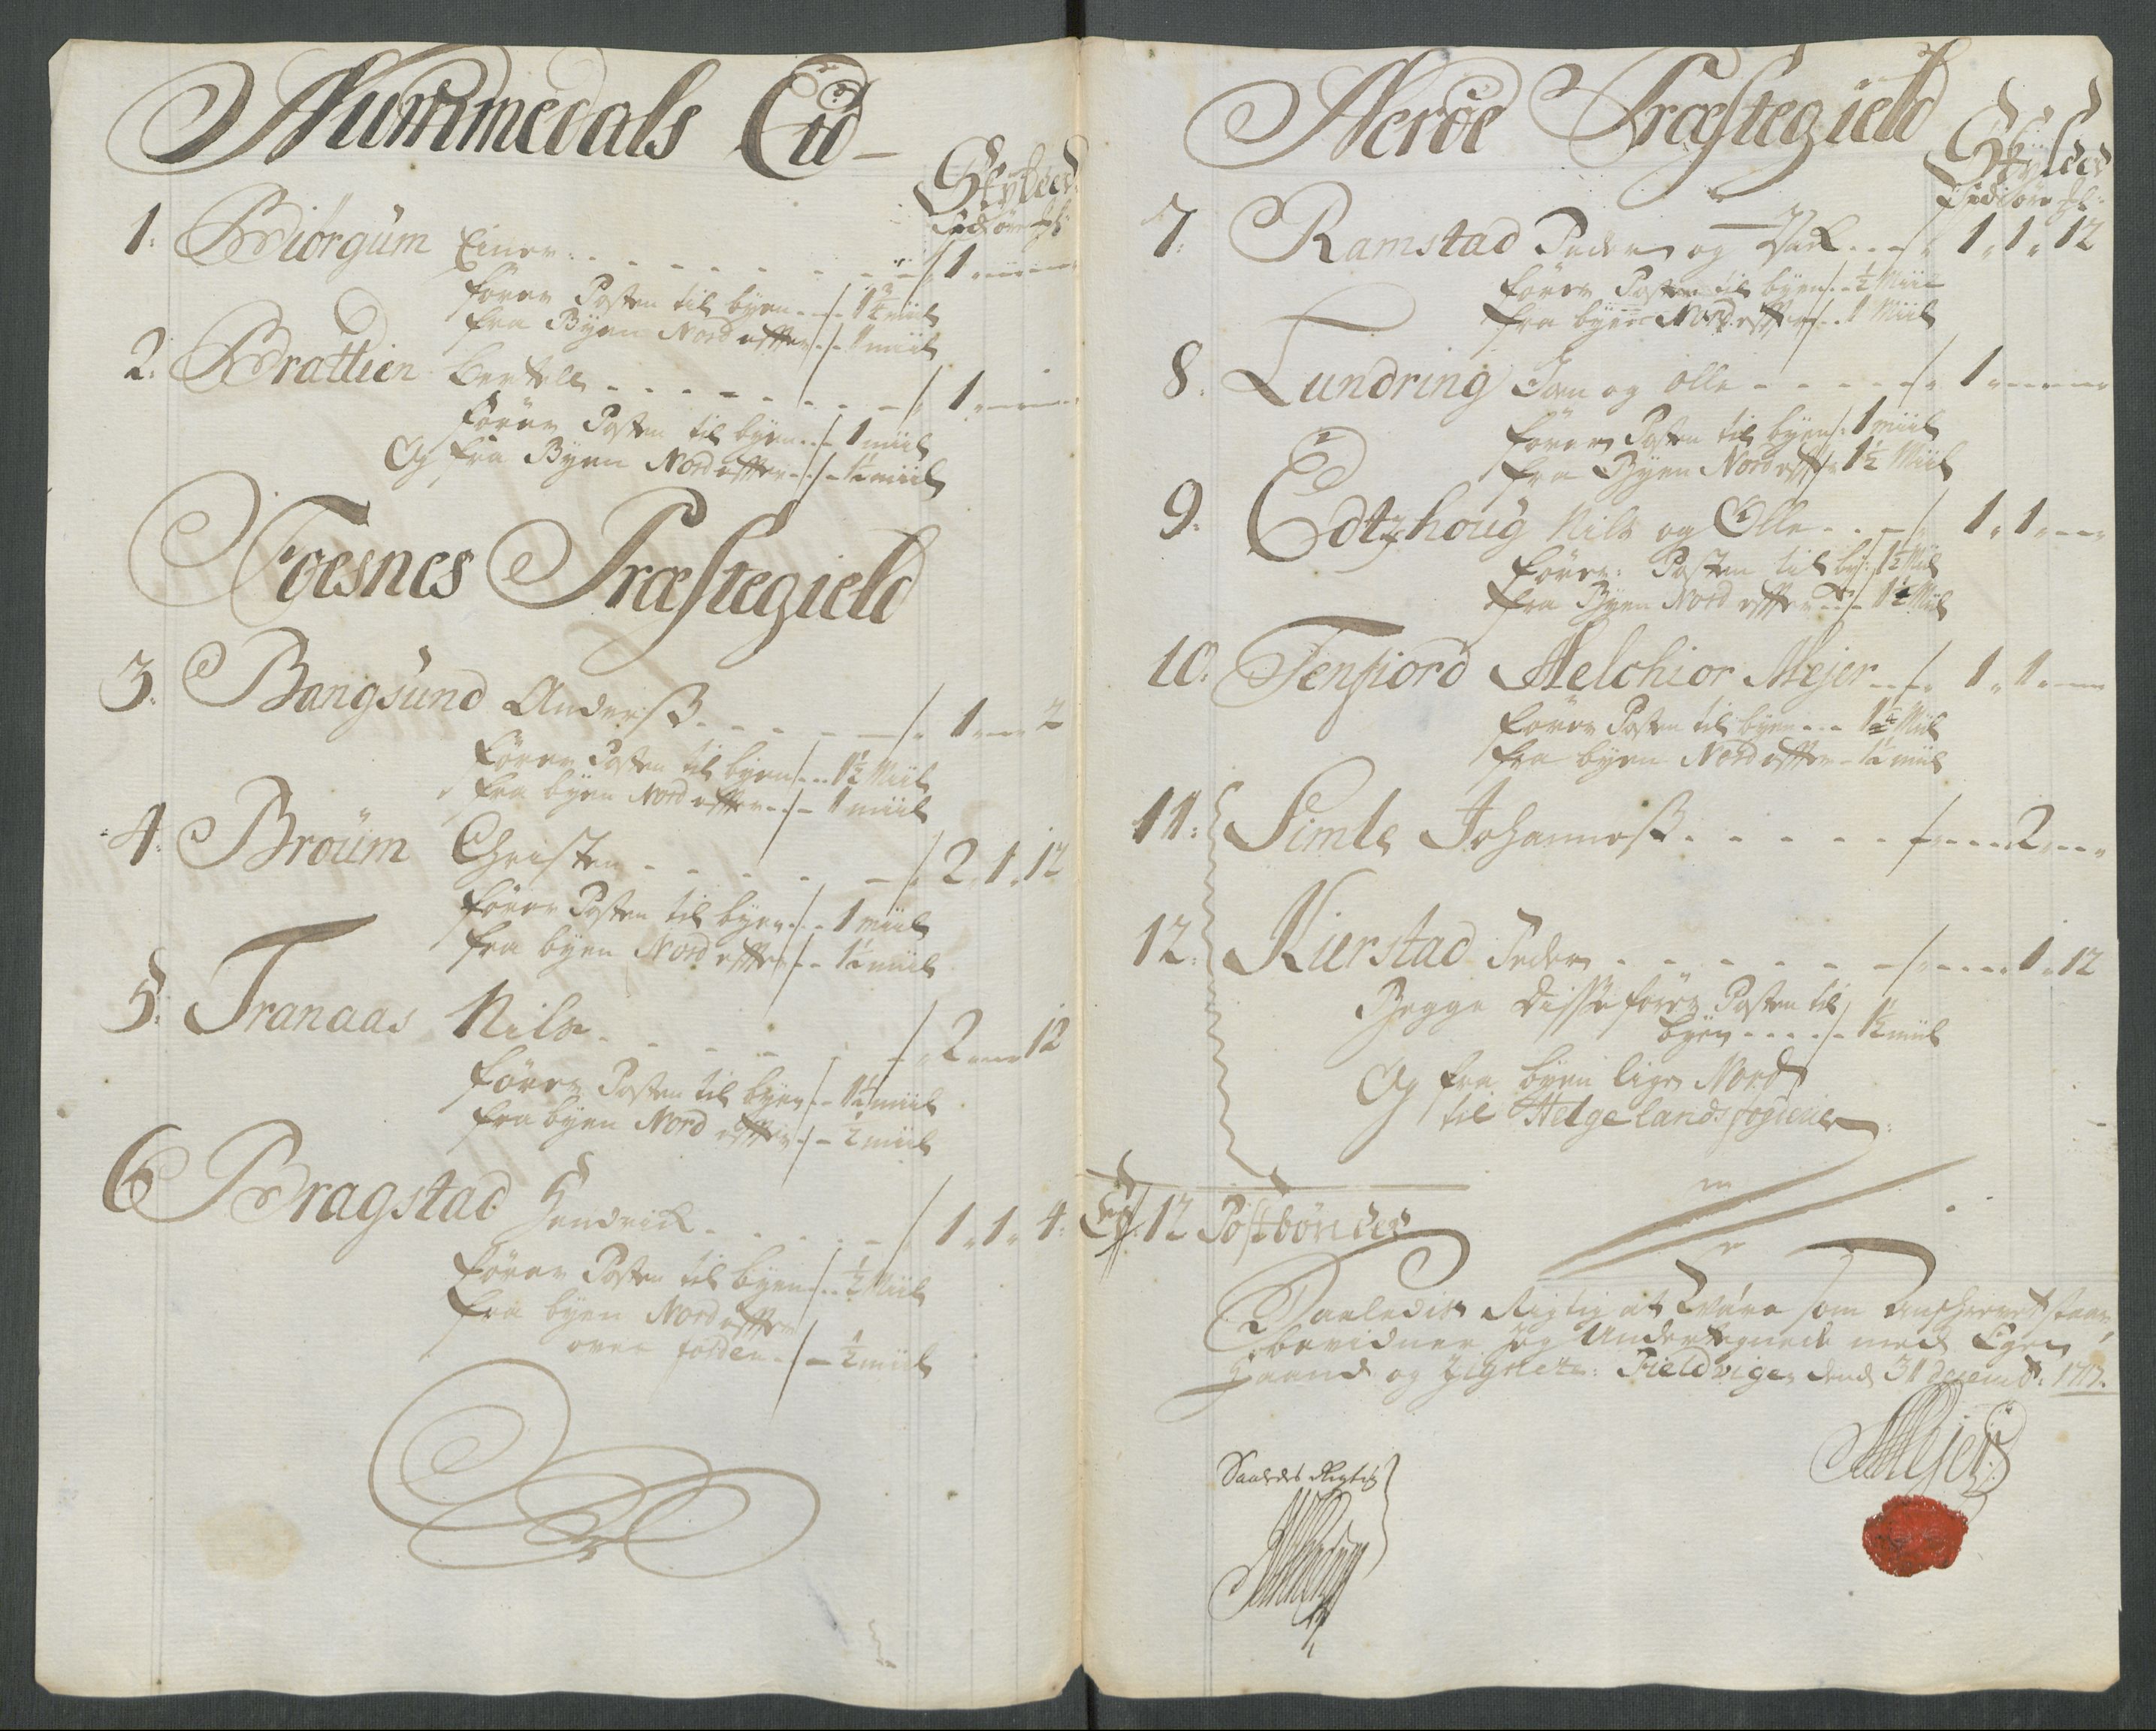 Nummedals Eid
Skylder
1. Biörgum Einer 1
fører Posten til byen 1¾ miil
fra Byen Nord effter 1 miil
2. Brattlien Bertell 1
fører Posten til byen 1 miil
Og fra Byen Nord effter miil
Foesnes Præstegield
3. Bangsund Anderß 1 2
fører Posten til byen 1½ Miil
fra byen Nord effter 1 miil
4. Broüm Christen 2 1 12
fører Posten til byen 1 miil
fra byen Nord effter miil
5. Tranaas Nils 2 12
fører Posten til byen miil
fra byen Nord effter ½ miil
6 Bragstad Hendrich 1 1 4
fører Posten til byen ½ Miil
fra byen Nord effter
over folden ½ miil
Nerøe Præstegield
Skylder
7. Ramstad Peder og 1 1 12
fører Posten til byen ½ Miil
fra byen Nord effter 1 Miil
8. Lundring Jon og Olle 1
fører Posten til byen 1 miil
fra Byen Nord effter 1½ Miil
9. Edtzhoug Nils og Olle 1 1
fører Posten til by: 1½ Miil
fra Byen Nord effter Miil
10. Tenfiord Melchior Mejer 1 1
fører Posten til byen Miil
fra byen Nord effter miil
11. Simle Johanneß 2
12. Kierstad Peder 1 12
Begge disse fører Posten til
byen 1½ miil
Og fra byen lige Nord
til Helgelands fogderie
Er 12 Postbønder
Saaledis Rigtig at Være som staar,
bevidner Jeg Undertegnede med Egen
Haand og Zignete: Fieldvigen dend 31 decemb: 1717.
Saaledes Rigtig